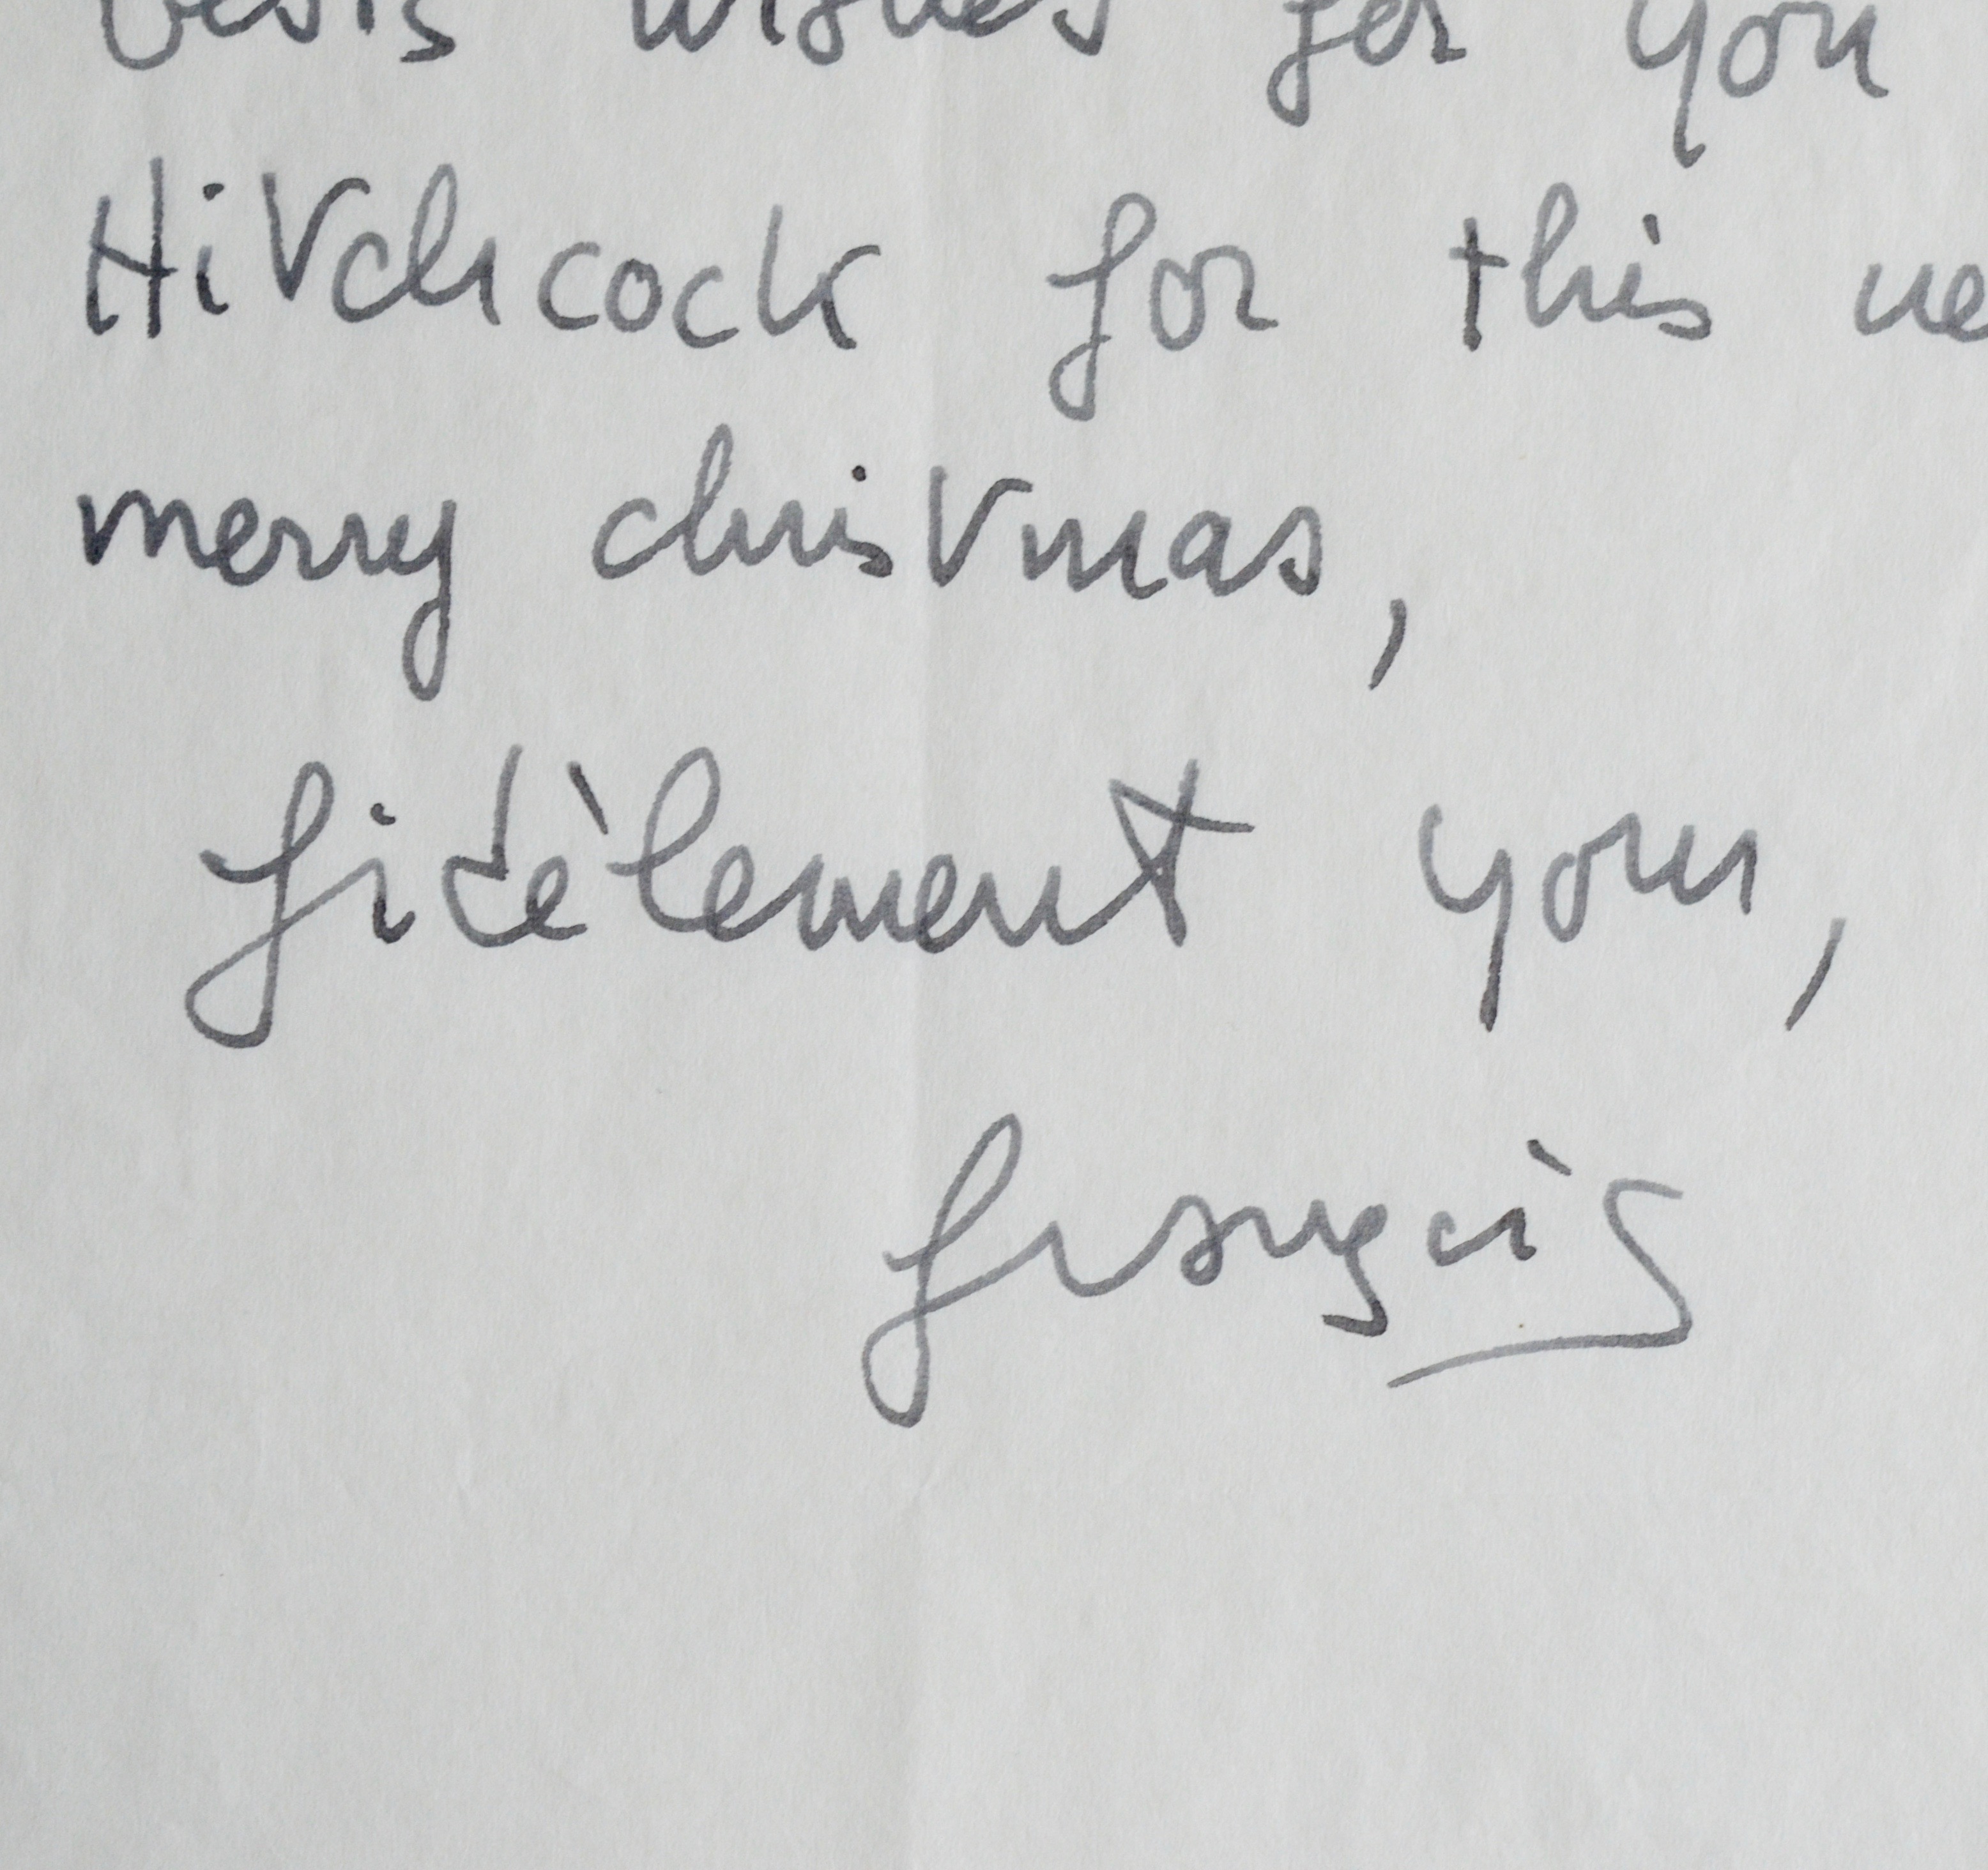 bests wishes for you
Hitchcock for this ne
merry christmas,
fidèlement your,
françois